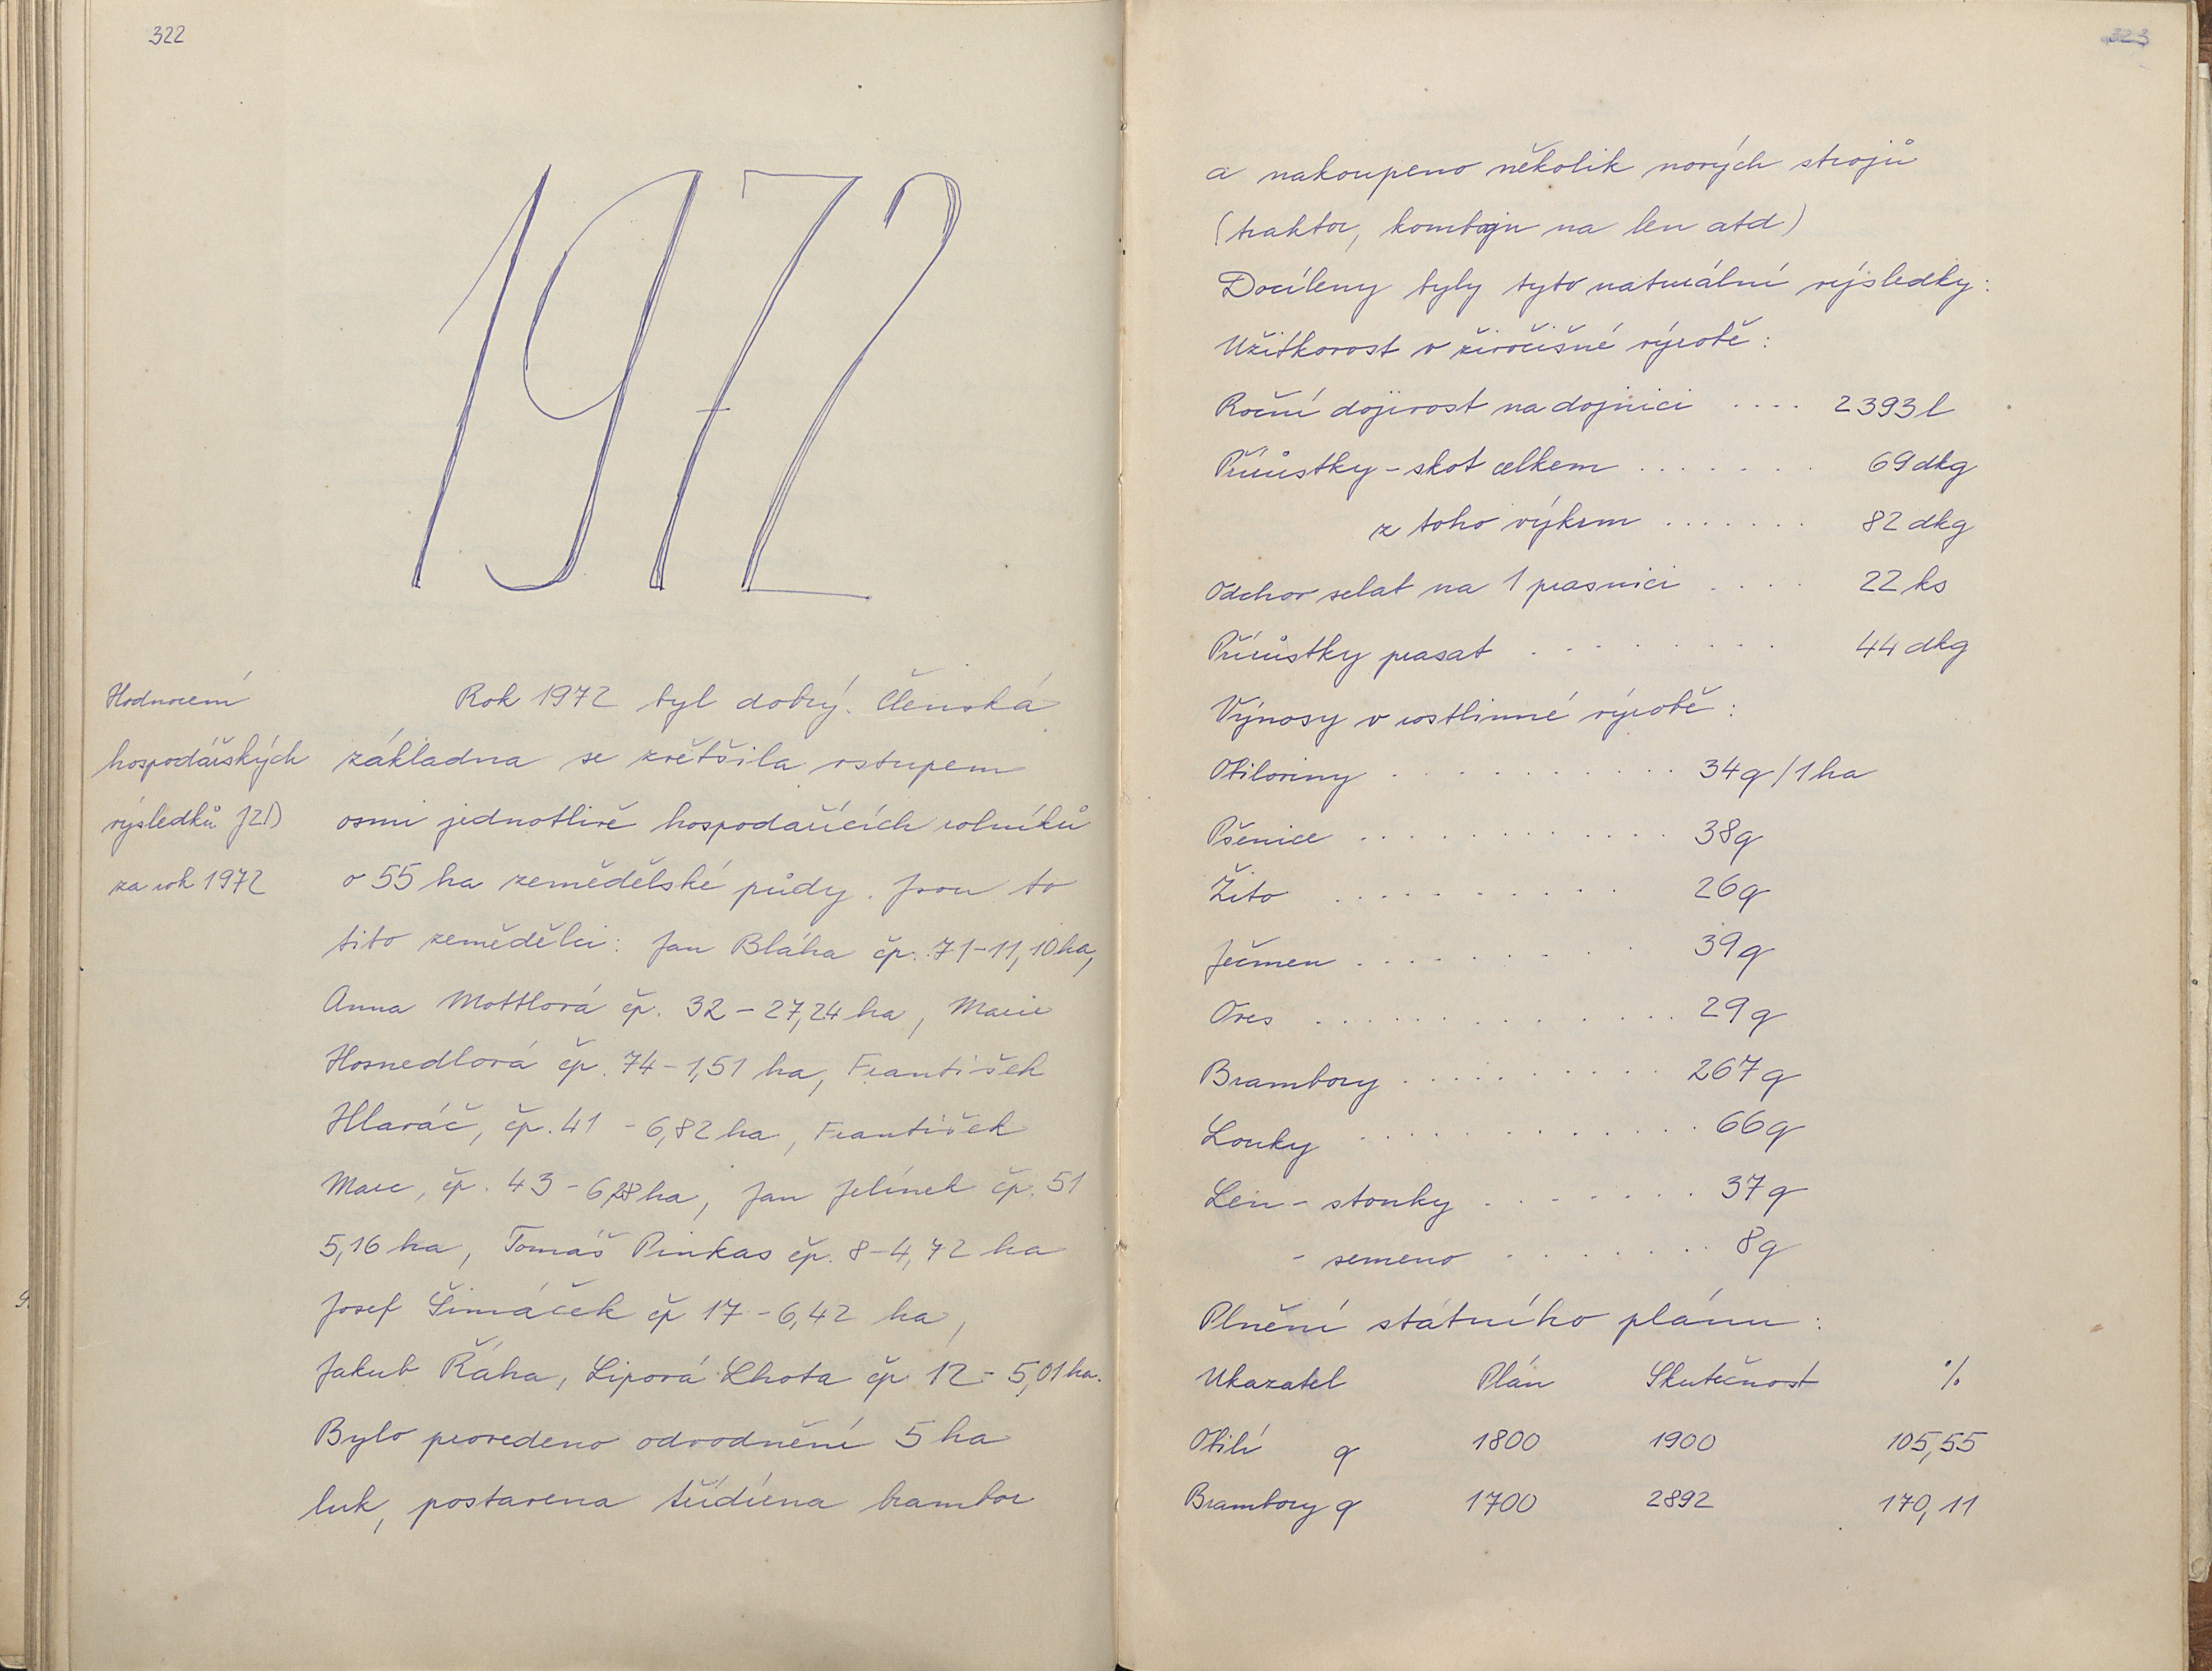 322
1972
Hodnocení
hospodářských
výsledků JZD
za rok 1972
Rok 1972 byl dobrý. Členská
základna se zvětšila vstupem
osmi jednotlivě hospodařících rolníků
o 55 ha zemědělské půdy. Jsou to
tito zemědělci: Jan Bláha čp. 71-11,10 ha,
Anna Mottlová čp. 32 - 27,24 ha, Marie
Hosnedlová čp. 74 - 1,51 ha, František
Hlaváč, čp. 41 - 6,82 ha, František
Marc, čp. 43 - 6,28 ha, Jan Jelínek čp. 51
5,16 ha, Tomáš Pinkas čp. 8 - 4,72 ha
Josef Šimáček čp 17 - 6,42 ha,
Jakub Řáha, Lipová Lhota čp 12 - 5,01 ha.
Bylo provedeno odvodnění 5 ha
luk, postavena třídírna brambor
323
a nakoupeno několik nových strojů
(traktor, kombajn na len atd)
Docíleny byly tyto naturální výsledky:
Užitkovost v živočišné výrobě:
Roční dojivost na dojnici .... 2393 l
Přírůstky - skot celkem ....... 69 dkg
z toho výkrm ....... 82 dkg
Odchov selat na 1 prasnici .... 22 ks
Přírůstky prasat ......... 44 dkg
Výnosy v rostlinné výrobě:
Obiloviny ........... 34 q/1 ha
Pšenice ............. 38 q
Žito .......... 26 q
Ječmen .......... 39 q
Oves ............. 29 q
Brambory .......... 267 q
Louky ............. 66 q
Len - stonky ....... 37 q
- semeno ........ 8 q
Plnění státního plánu:
Ukazatel Plán Skutečnost %
Obilí q 1800 1900 105,55
Brambory q 1700 2892 170,11